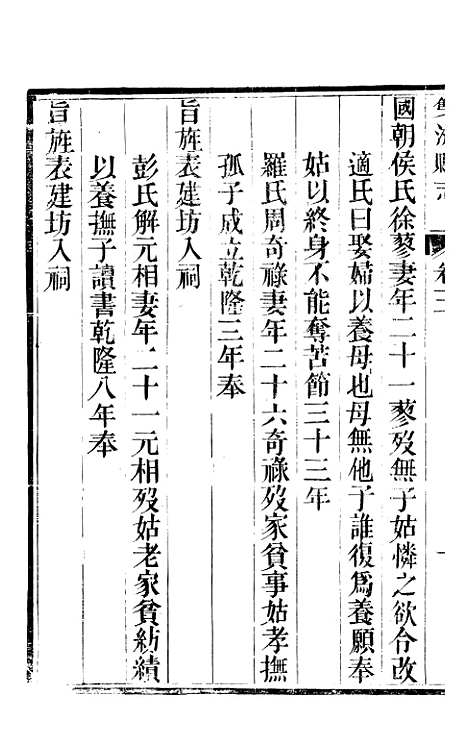 雙流縣志 卷三
國朝侯氏徐蓼妻年二十一蓼歿無子姑憐之欲令改
適氏曰娶婦以養母也母無他子誰復爲養願奉
姑以終身不能奪苦節三十三年
羅氏周奇祿妻年二十六奇祿歿家貧事姑孝撫
孤子成立乾隆三年奉
旨旌表建坊入祠
彭氏解元相妻年二十一元相歿姑老家貧紡績
以養撫子讀書乾隆八年奉
旨旌表建坊入祠